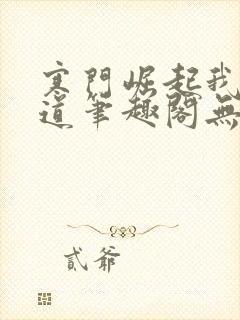 寒門崛起我
道筆趣閣無
貳爺